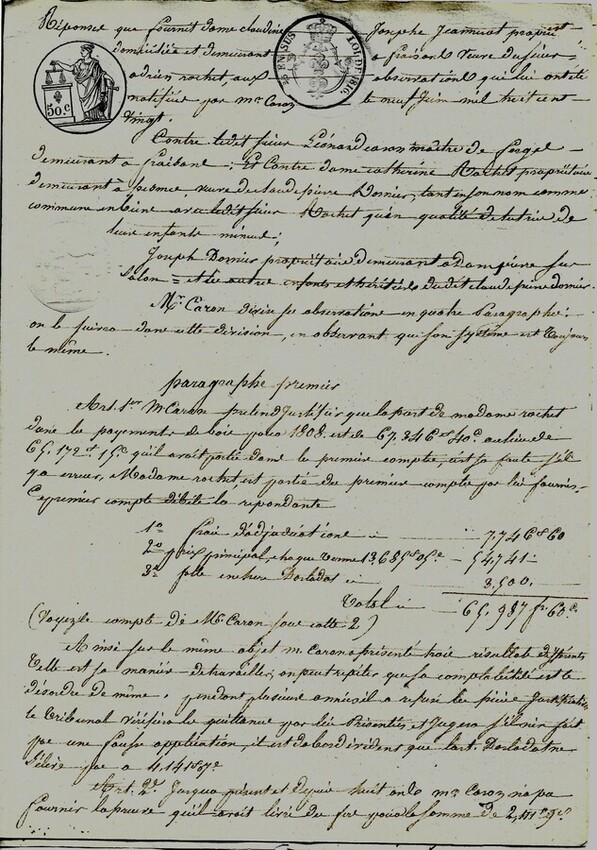 Réponses que fournit dame claudine Josephe Jeannerat propriét
domiciliée et demeurant à fraisans veuve du sieur
adrien rochet, aux observations qui lui ont été
notifiées par mr Caron le neuf Juin mil huit cent
vingt.
50.c
TIMBRE LOI DE 1816
Contre ledit sieur Léonard caron maitre de forges
demeurant à fraisans; Et Contre dame catherine Rochet propriétaire
demeurant à veuve de claude pierre Dornier, tant en son nom comme
commune en biens avec ledit sieur Rochet qu'en qualité de tutrice de
leurs enfants mineurs;
Joseph Dornier propriétaire demeurant à Dampierre sur
Salon et les autres enfants et héritiers dudit claude pierre dornier.
Mr Caron divise ses observations en quatre Paragraphes:
on le suivra dans cette division, en observant que son systême est toujours
le même.
paragraphe premier
Art. 1.er M Caron prétend Justifier que la part de madame rochet
dans les payements de bois pour 1808. est de 67,346 40.c au lieu de
65,172 15c qu'il avait portée dans le premier compte, c'est sa faute s'il
y a erreur, Madame rochet est partie du premier compte par lui fourni.
Ce premier compte débite la répondante
1.o frais d'adjudications 7,746 60
2.o prix principal, chaque terme 13,685 05c 54,741
3.o folle enchère Dorlodos 3,500.
Total 65,987 fr 60.c
(Voyez le compte de Mr Caron sous cotte 2)
Ainsi sur le même objet m. caron a présenté trois résultats différents
telle est sa manière de travailler, on peut répéter que sa comptabilité est le
désordre de même. pendant plusieurs années il a refusé les pièces Justificatives
le tribunal vérifiera les quittances par lui Présentées et Jugera s'il n'en fait
pas une fausse application, il est d'abord évident que l'art. Dorlodos ne
s'élève pas à 4,141
Art. 2.e Jusqu'à présent et depuis huit ans mr Caron n'a pas
fourni la preuve qu'il avait livré du fer pour la somme de 2,111